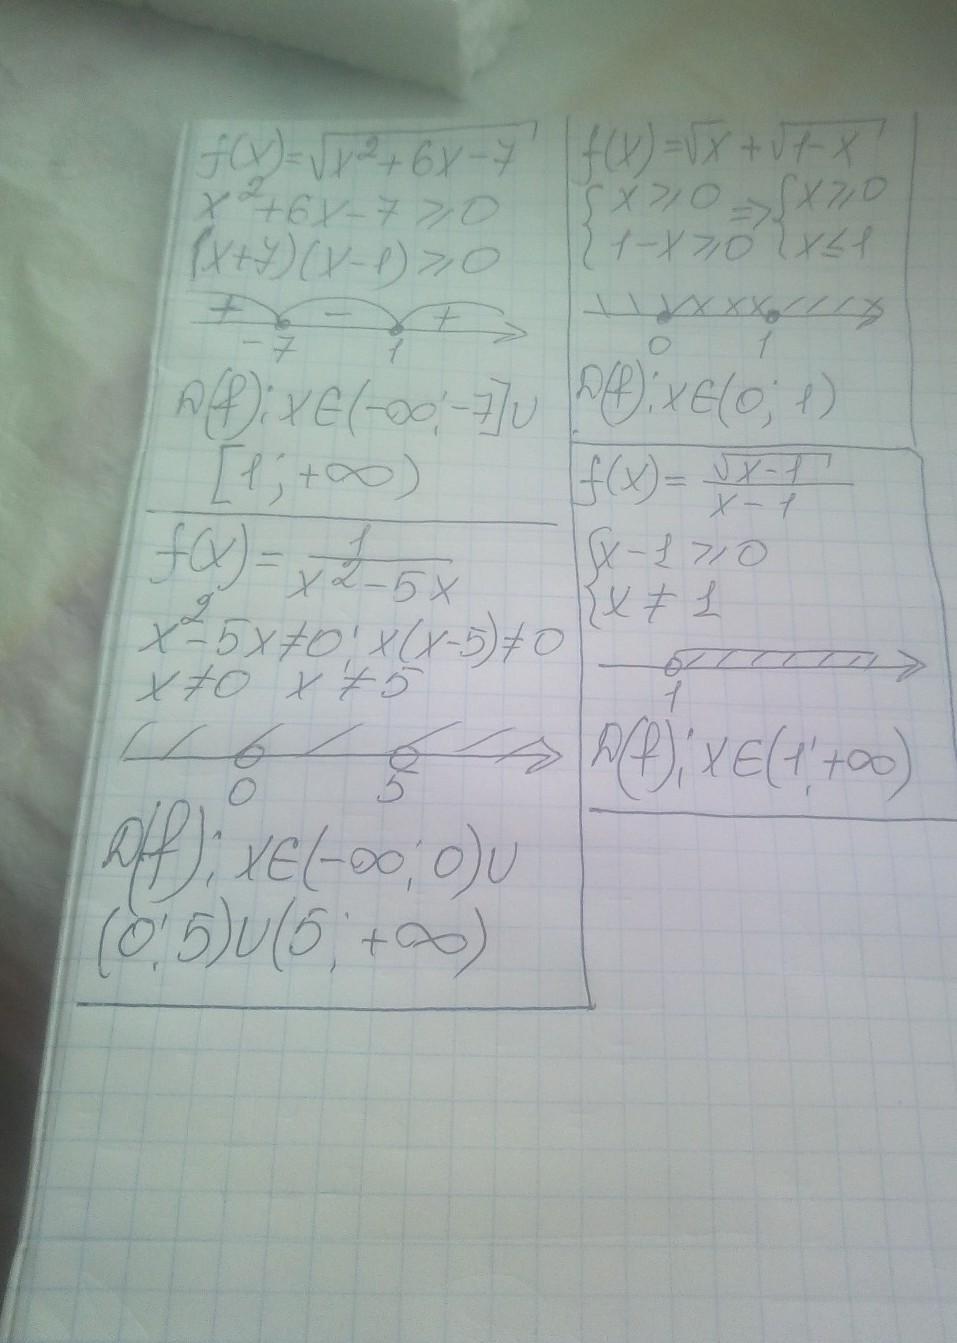 f(x)=√(x²+6x-7)
x²+6x-7⩾0
(x+7)(x-1)⩾0
+ - +
-7 1
D(f): x∈(-∞;-7]∪
[1;+∞)
f(x)=1/(x²-5x)
x²-5x≠0; x(x-5)≠0
x≠0 x≠5
0 5
D(f): x∈(-∞;0)∪
(0;5)∪(5;+∞)
f(x)=√x+√(1-x)
{x⩾0 => {x⩾0
{1-x⩾0 {x≤1
0 1
D(f): x∈(0; 1)
f(x)=√(x-1)/(x-1)
{x-1⩾0
{x≠1
1
D(f): x∈(1;+∞)